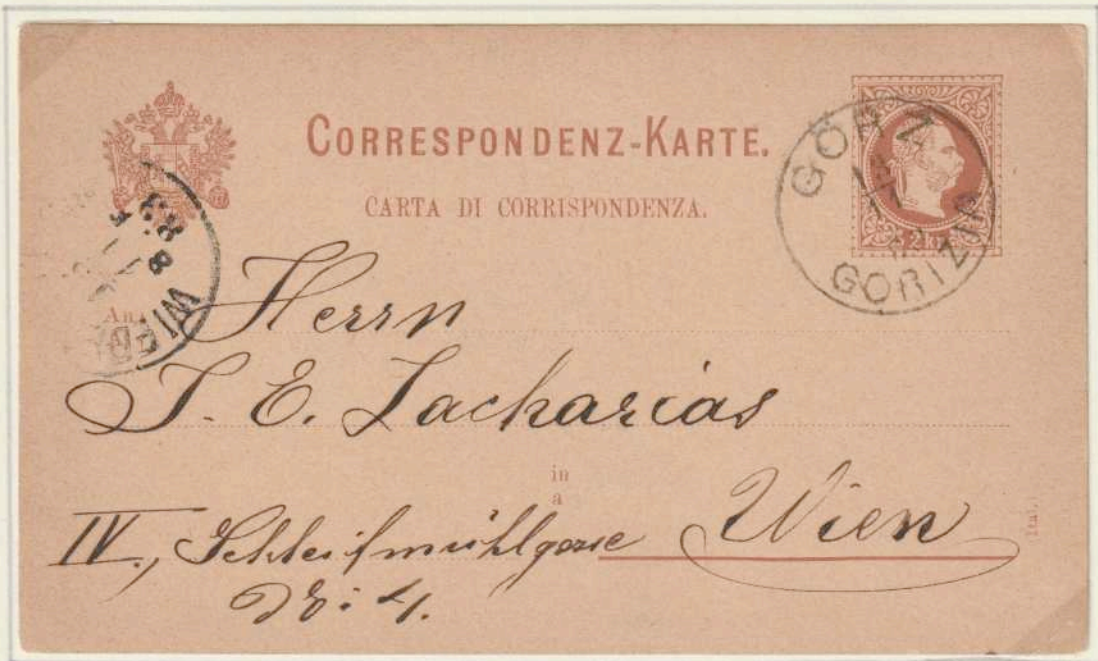 CORRESPONDENZ-KARTE.
CARTA DI CORRISPONDENZA.
2 kr
GÖRZ
GORIZIA
WIEDEN
8 83
An
Herrn
J. E. Zacharias
in
a
Wien
IV., Schleifmühlgasse
Nr: 4.
Ital.